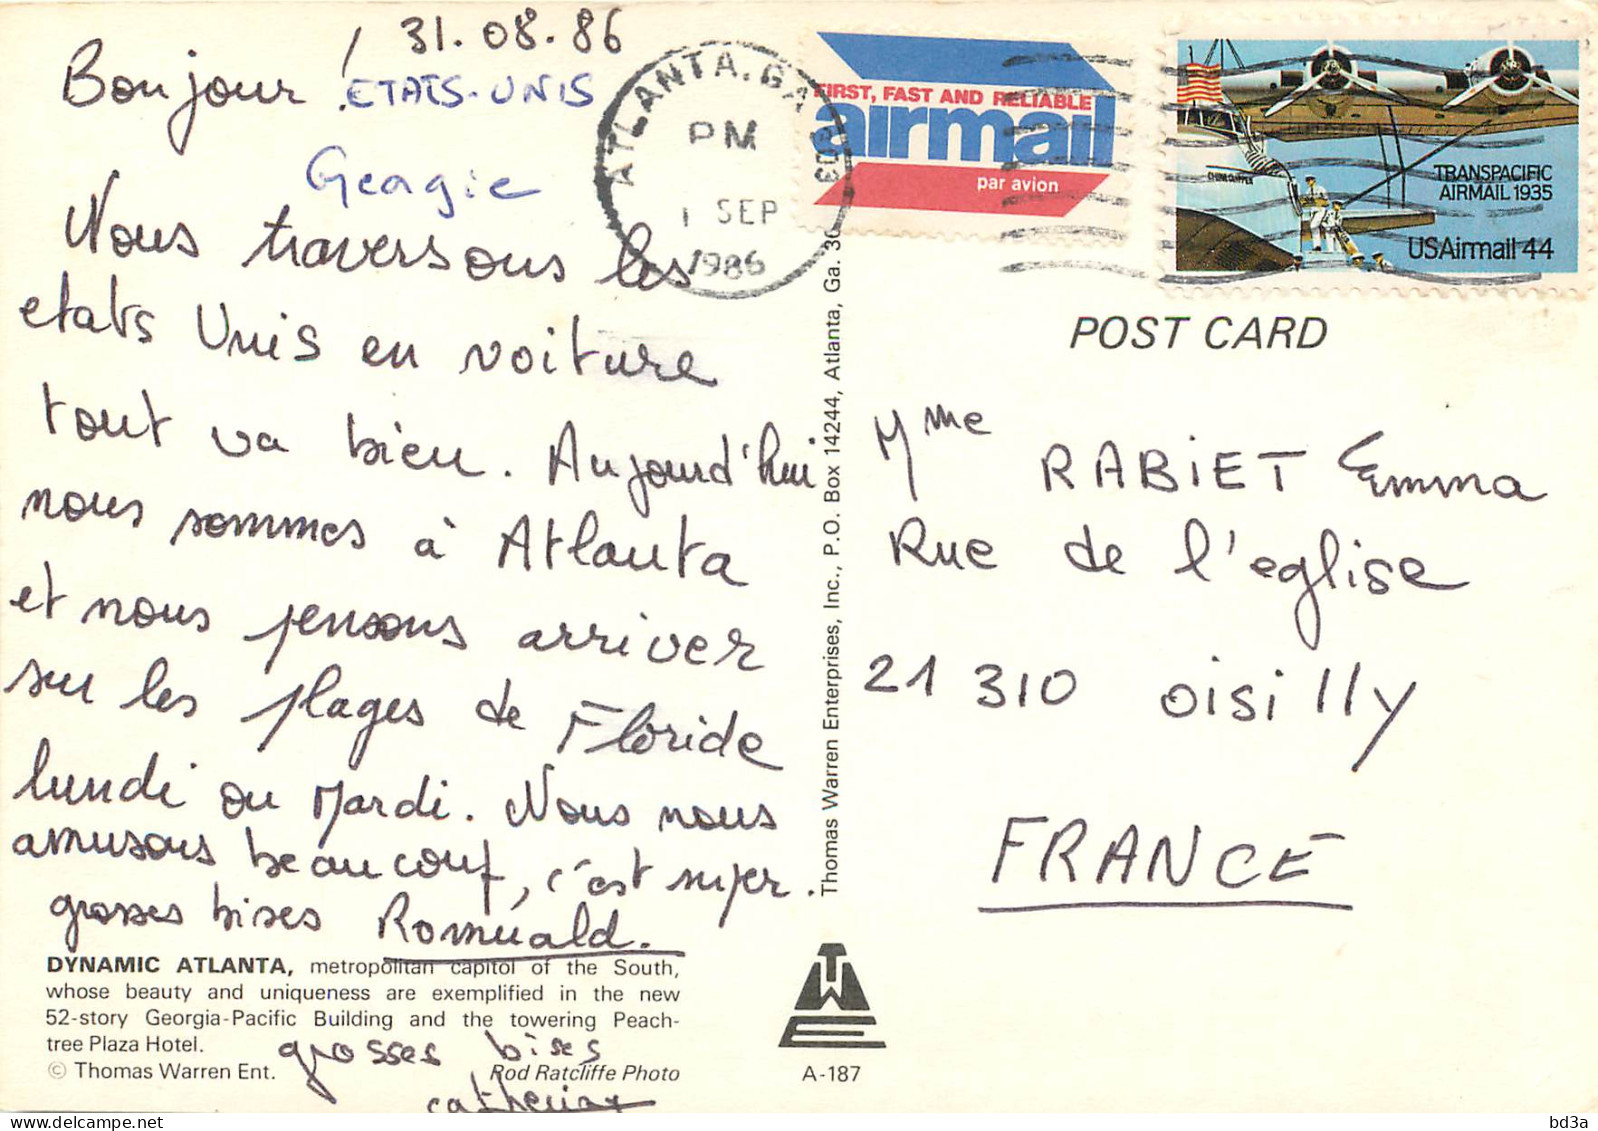 31.08.86
Bonjour !
ETATS-UNIS
Geogie
Nous traversons les
etats Unis en voiture
tout va bien. Aujourd'hui
nous sommes à Atlanta
et nous pensons arriver
sur les plages de Floride
lundi ou Mardi. Nous nous
amusons beaucoup, c'est super.
grosses bises Romuald.
DYNAMIC ATLANTA, metropolitan capitol of the South,
whose beauty and uniqueness are exemplified in the new
52-story Georgia-Pacific Building and the towering Peach-
tree Plaza Hotel.
© Thomas Warren Ent.
Rod Ratcliffe Photo
grosses bises
Catherine
ATLANTA, GA 303
PM
1 SEP
1986
FIRST, FAST AND RELIABLE
airmail
par avion
CHINA CLIPPER
TRANSPACIFIC
AIRMAIL 1935
USAirmail 44
Thomas Warren Enterprises, Inc., P.O. Box 14244, Atlanta, Ga. 30
POST CARD
Mme RABIET Emma
Rue de l'eglise
21 310 oisilly
FRANCE
TWE
A-187
bd3a